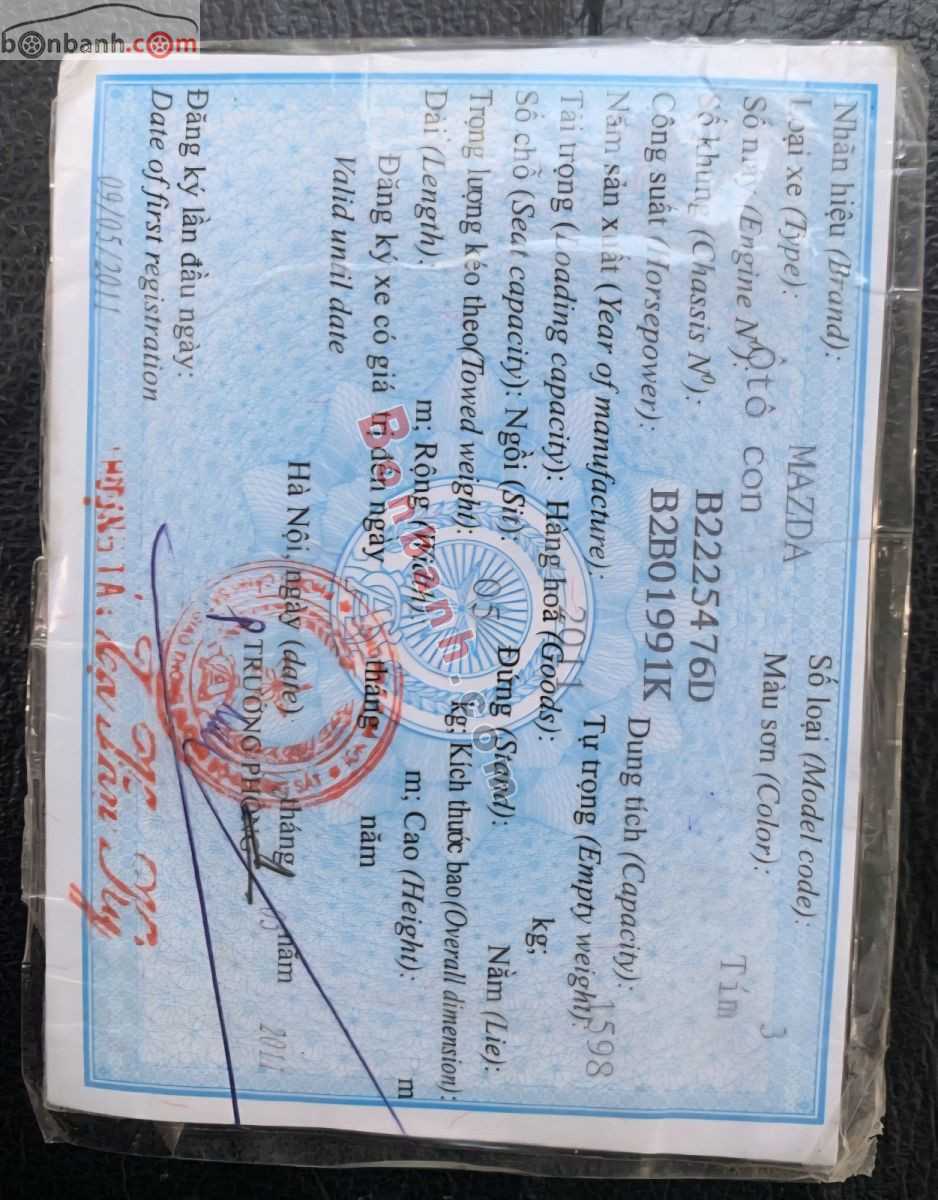 bonbanh.com
Nhãn hiệu (Brand): MAZDA Số loại (Model code): 3
Loại xe (Type): Ôtô con Màu sơn (Color): Tím
Số máy (Engine Nº): B2225476D
Số khung (Chassis Nº): B2B01991K
Công suất (Horsepower): Dung tích (Capacity): 1598
Năm sản xuất (Year of manufacture): 2011 Tự trọng (Empty weight):
Tải trọng (Loading capacity): Hàng hoá (Goods): kg;
Số chỗ (Seat capacity): Ngồi (Sit): 05 Đứng (Stand): Nằm (Lie):
Trọng lượng kéo theo(Towed weight): kg; Kích thước bao(Overall dimension):
Dài (Length): m; Rộng (Width): m; Cao (Height): m
Đăng ký xe có giá trị đến ngày tháng năm
Valid until date
Bonbanh.com
Hà Nội, ngày (date) tháng 05 năm 2011
TRƯỞNG PHÒNG
Đăng ký lần đầu ngày:
Date of first registration
09/05/2011